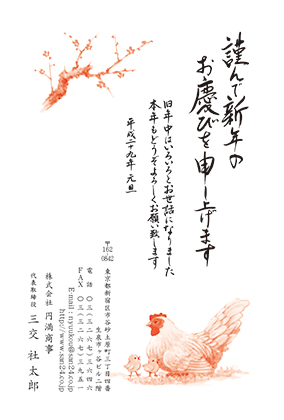 謹んで新年の
お慶びを申し上げます
旧年中はいろいろとお世話になりました
本年もどうぞよろしくお願い致します
平成二十九年 元旦
〒162-0842
東京都新宿区市谷砂土原町三丁目四番
生泉市ヶ谷ビル二階
電話 〇三(三二六七)三六四六
FAX 〇三(三二六七)三九五一
E-mail:nyuukou@san24.co.jp
http://www.san24.co.jp
株式会社 円満商事
代表取締役 三交 社太郎